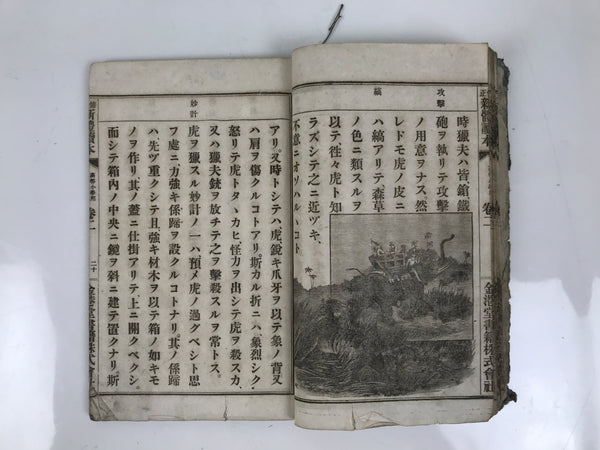 攻撃
縞
時獵夫ハ皆鎗鐵
砲ヲ執リテ攻撃
ノ用意ヲナス、然
レドモ虎ノ皮ニ
ハ縞アリテ森草
ノ色ニ類スルヲ
以テ往々虎ト知
ラズシテ之ニ近ヅキ、
不意ニオソハルヽコト
卷二
金港堂書籍株式會社
妙計
アリ。又時トシテハ、虎、鋭キ爪牙ヲ以テ象ノ背又
ハ肩ヲ傷クルコトアリ。斯カル折ニハ、象烈シク
怒リテ虎トタヽカヒ、怪力ヲ出シテ虎ヲ殺スカ、
又ハ獵夫銃ヲ放チテ之ヲ撃殺スルヲ常トス。
虎ヲ獵スル妙計ノ一ハ預メ虎ノ過グベシト思
フ處ニ力強キ係蹄ヲ設クルコトナリ其ノ係蹄
ハ先ヅ重クシテ且强キ材木ヲ以テ箱ノ如キモ
ノヲ作リ其ノ蓋ニ仕掛アリテ上ニ開クベクシ、
而シテ箱内ノ中央ニ鏡ヲ斜ニ建テ置クナリ斯
新體讀本
高等小學用
卷二
二十
金港堂書籍株式會社